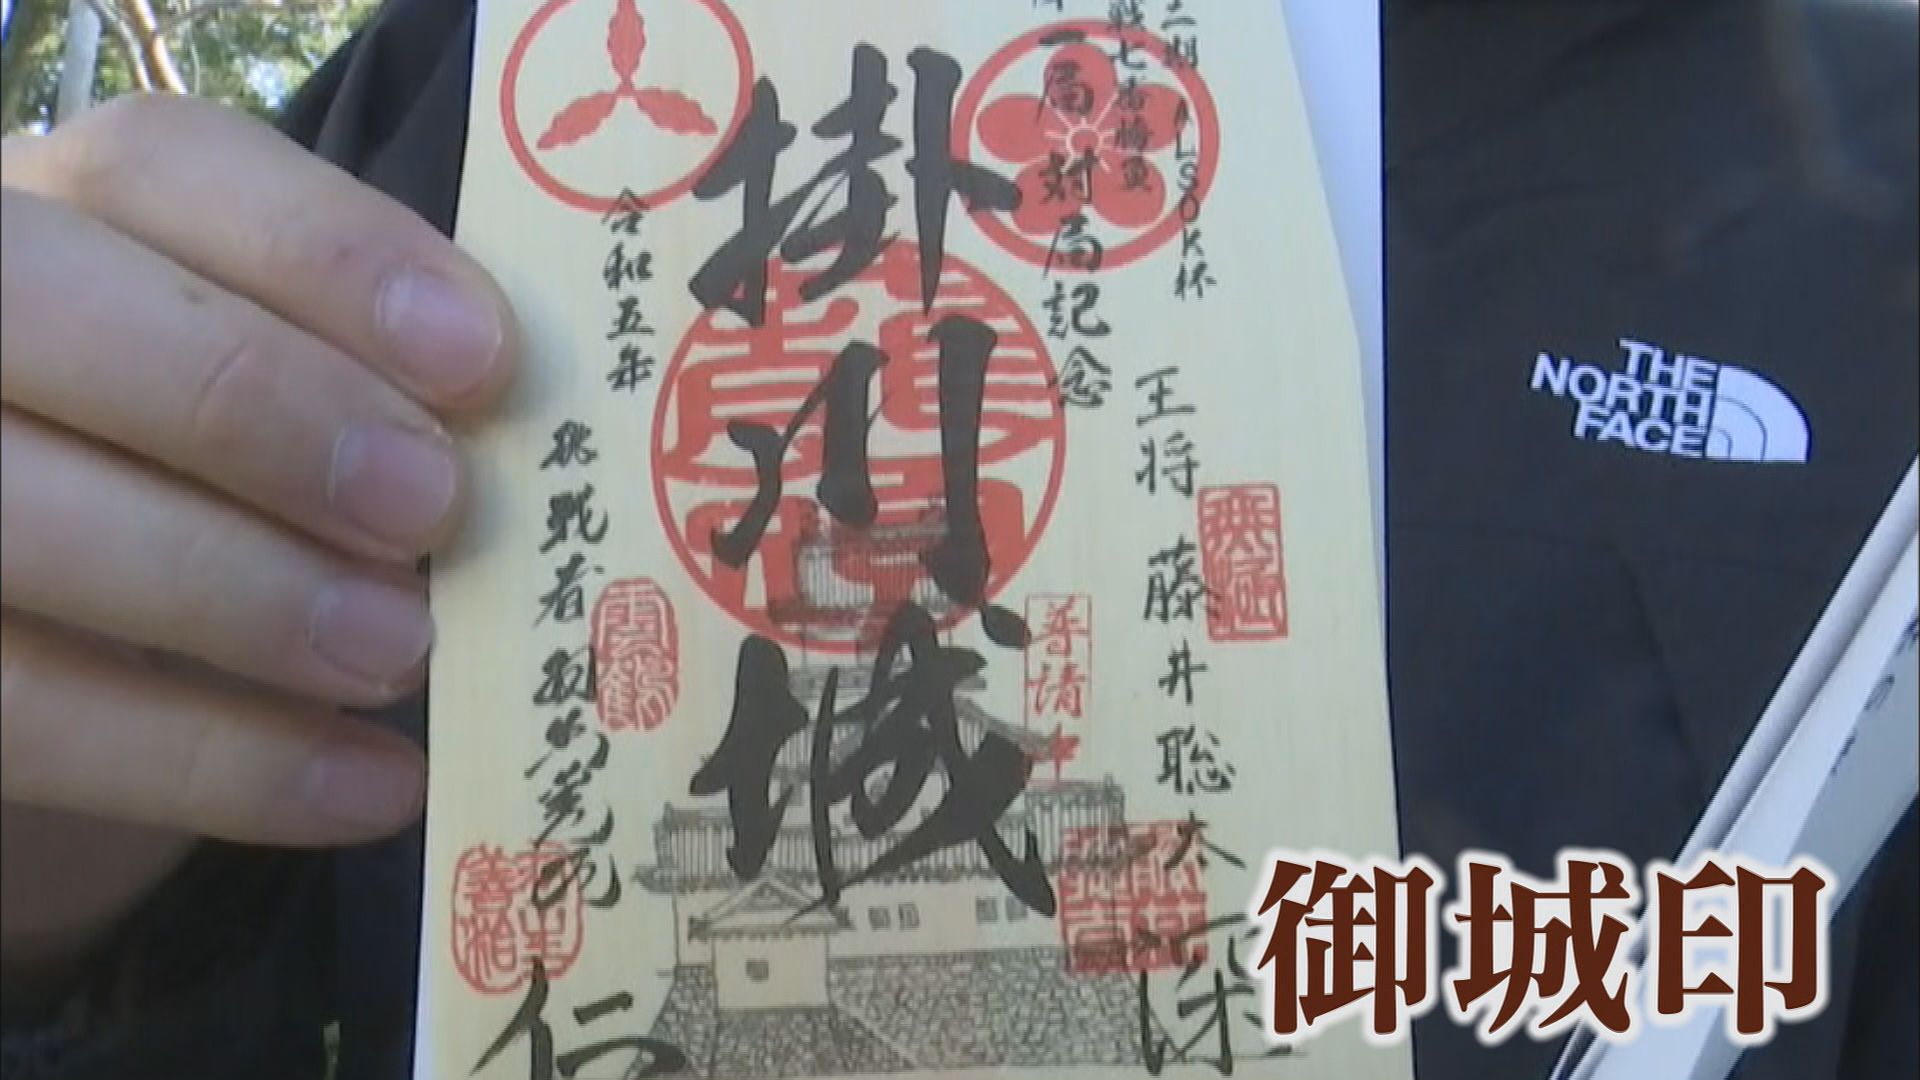 二期 ALSOK杯
戦七番勝負
第一局対局記念
王将 藤井聡太
深
掛川城
普請中
令和五年
挑戦者 羽生善治
仁
THE
NORTH
FACE
御城印